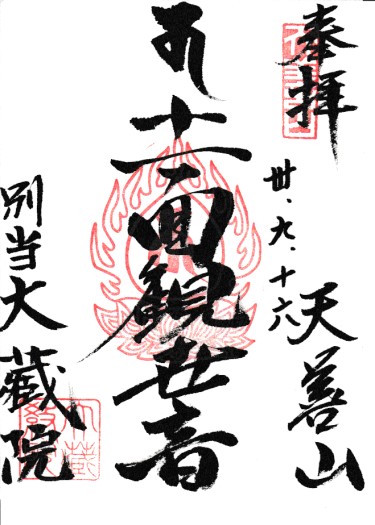 奉拝
天善山
卅、九、十六
十一面観世音
別当大蔵院